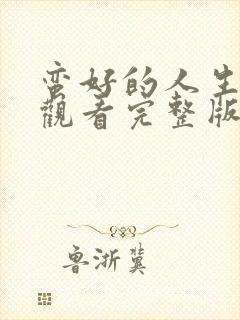 蛮好的人生
觀看完整版
鲁浙冀